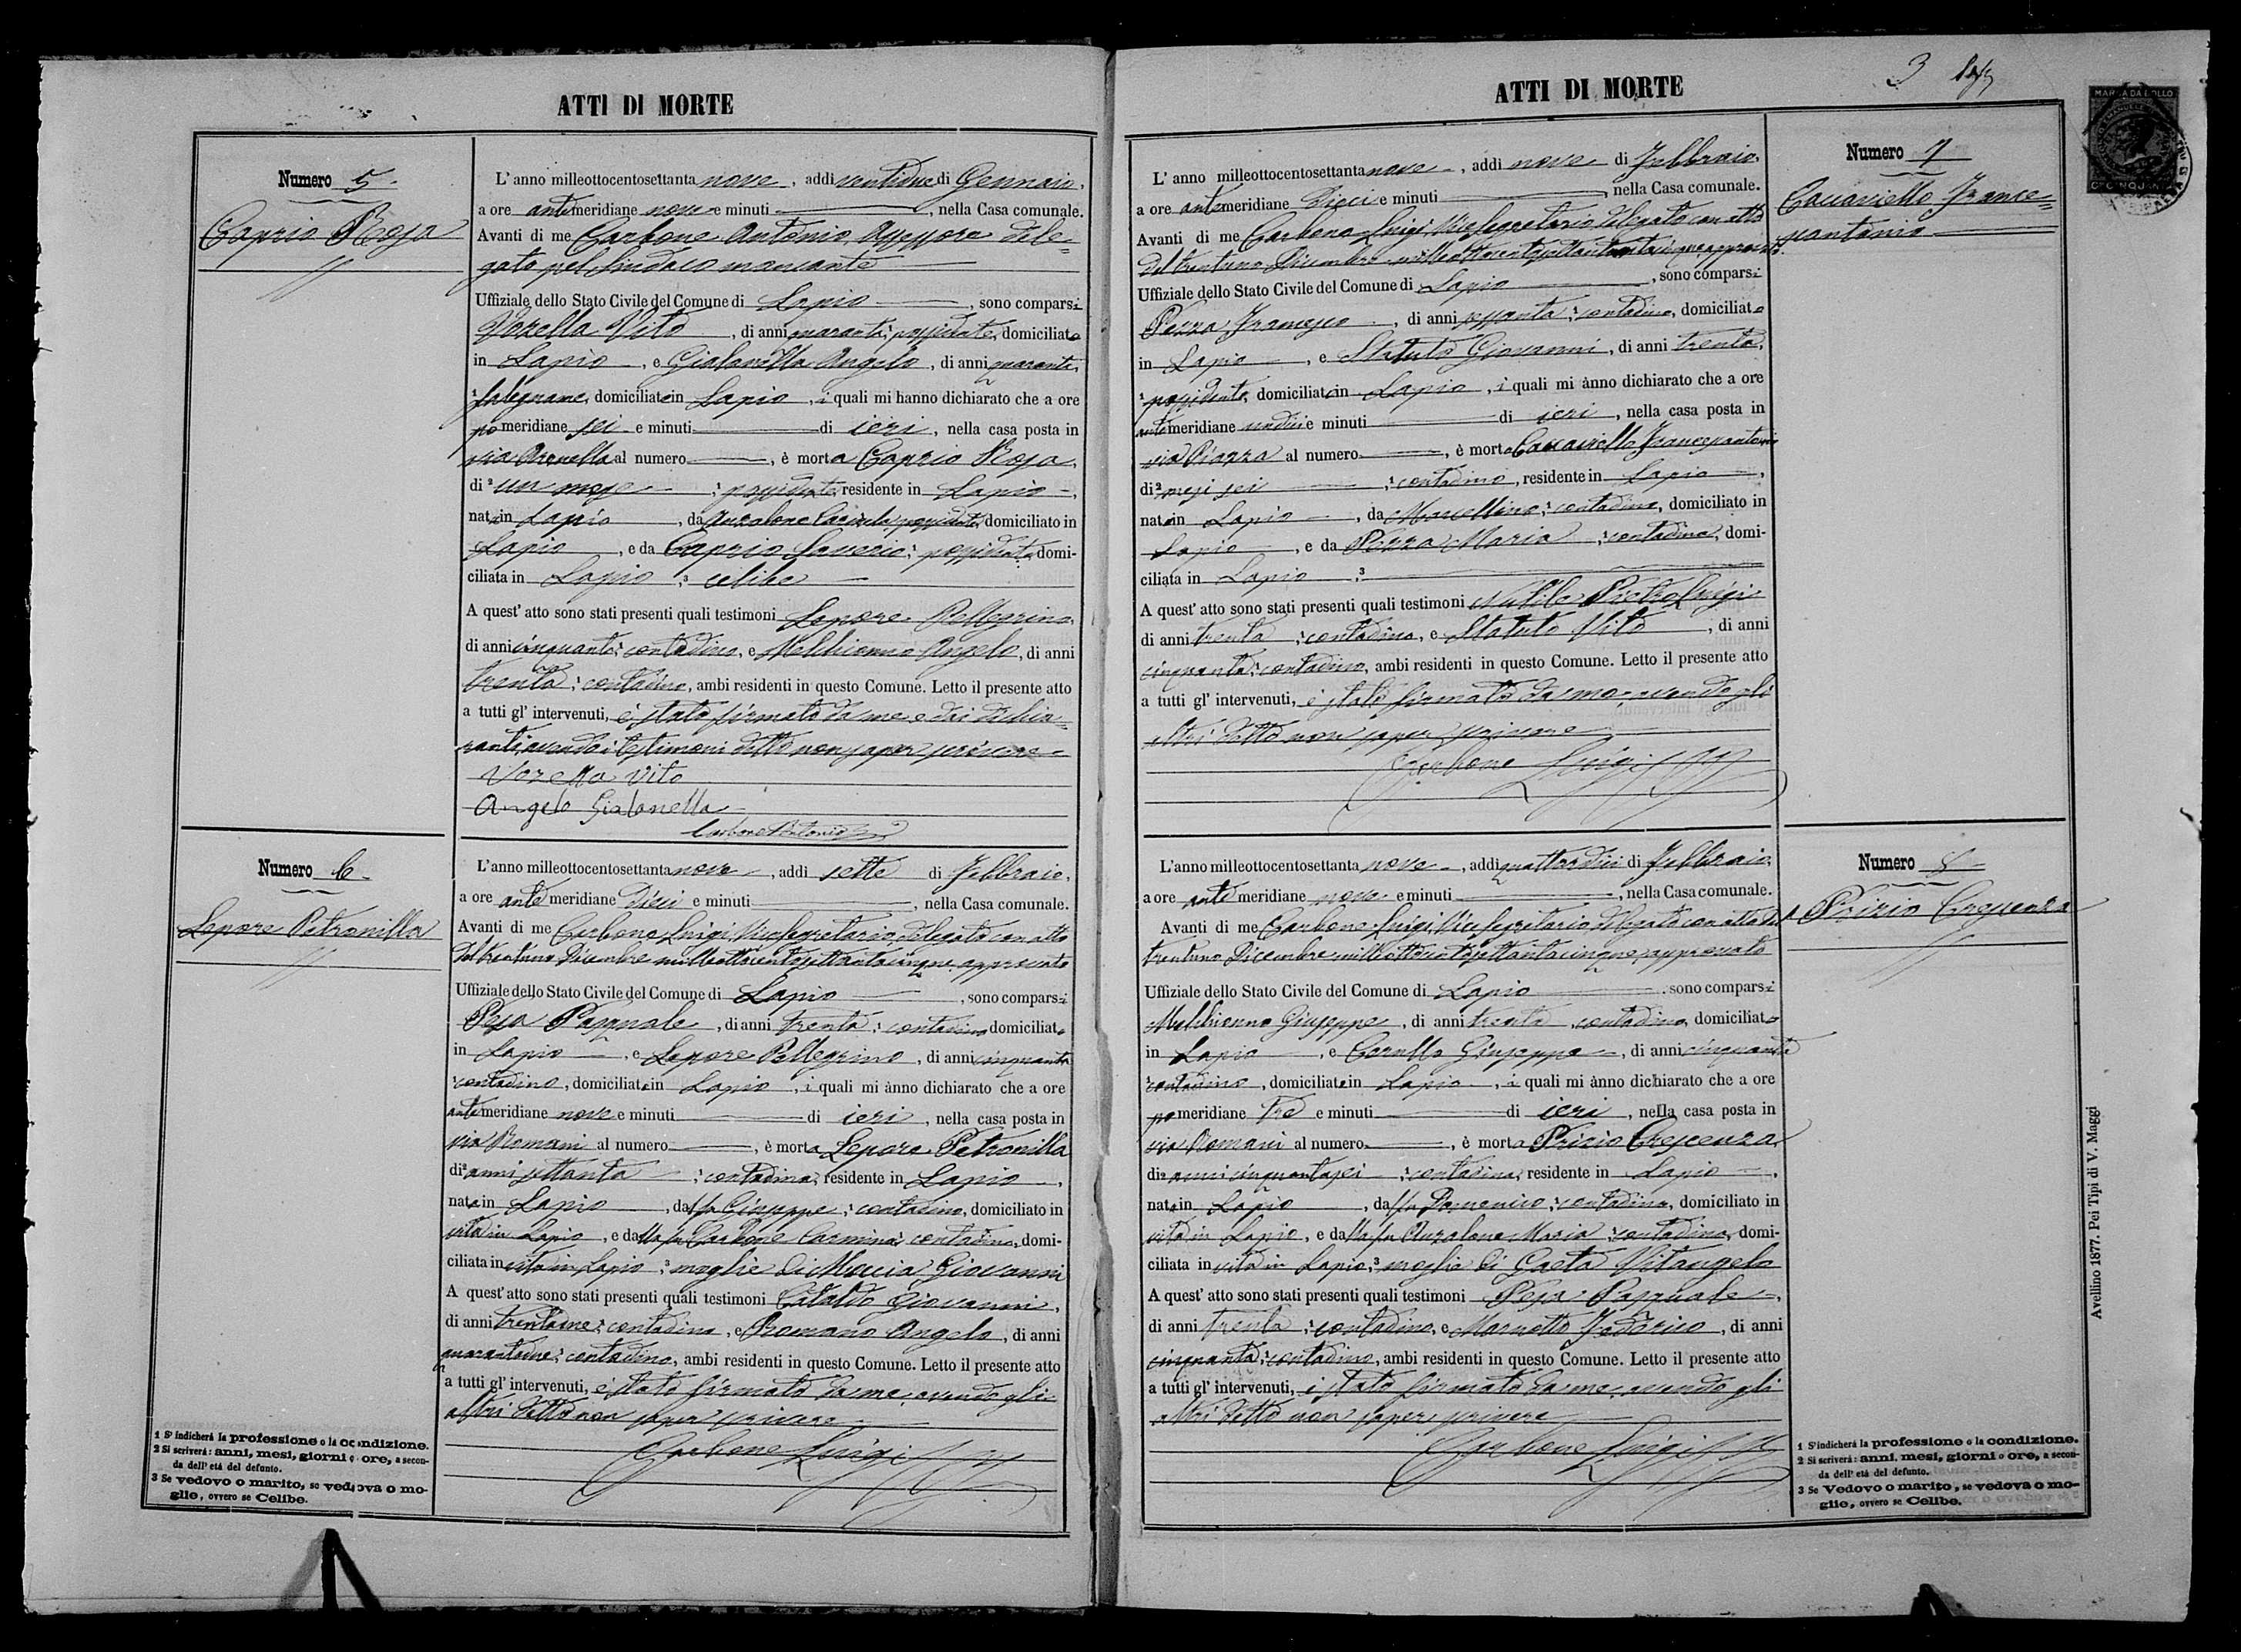 ATTI DI MORTE
Numero 5
Caprio Rosa
L'anno milleottocentosettantanove, addì ventidue di Gennaio,
a ore antimeridiane nove e minuti , nella Casa comunale.
Avanti di me Carbone Antonio Assessore dele=
gato pel Sindaco mancante
Uffiziale dello Stato Civile del Comune di Lapio , sono comparsi
Vozella Vito , di anni quaranta, possidente, domiciliato
in Lapio , e Gialanella Angelo , di anni quaranta,
falegname, domiciliato in Lapio , i quali mi hanno dichiarato che a ore
pomeridiane sei e minuti di ieri , nella casa posta in
via Arenella al numero , è morta Caprio Rosa,
di 2 un mese , possidente, residente in Lapio ,
nata in Lapio , da Anzalone possidente, domiciliato in
Lapio , e da Caprio Saverio, possidente, domi-
ciliata in Lapio , 3 celibe
A quest' atto sono stati presenti quali testimoni Lepore Pellegrino,
di anni cinquanta, contadino, e Melchionno Angelo, di anni
trenta, contadino, ambi residenti in questo Comune. Letto il presente atto
a tutti gl' intervenuti, è stato firmato da me e dai dichia=
ranti, avendo i testimoni detto non saper scrivere
Vozella Vito
Angelo Gialanella
Carbone Antonio
Numero 6
Lepore Petronilla
L'anno milleottocentosettantanove, addì sette di Febbraio,
a ore antimeridiane Dieci e minuti , nella Casa comunale.
Avanti di me Carbone Luigi, Vicesegretario, delegato con atto
del trentuno Dicembre milleottocentosettantacinque, approvato
Uffiziale dello Stato Civile del Comune di Lapio , sono comparsi
Pesa Pasquale , di anni trenta, contadino domiciliato
in Lapio , e Lepore Pellegrino , di anni cinquanta
contadino , domiciliato in Lapio , i quali mi ànno dichiarato che a ore
antimeridiane nove e minuti di ieri , nella casa posta in
via Romani al numero , è morta Lepore Petronilla
di 2 anni settanta , contadina, residente in Lapio ,
nata in Lapio , dal fu Giuseppe, contadino, domiciliato in
vita in Lapio , e dalla fu Carbone Carmina, contadina, domi-
ciliata in vita in Lapio , 3 moglie di Meccia Giovanni
A quest' atto sono stati presenti quali testimoni Cataldo Giovanni,
di anni , contadino , e Romano Angelo , di anni
quarantadue, contadino, ambi residenti in questo Comune. Letto il presente atto
a tutti gl' intervenuti, è stato firmato da me, avendo gli
altri detto non saper scrivere
Carbone Luigi
1 S'indicherà la professione o la condizione.
2 Si scriverà: anni, mesi, giorni o ore, a secon-
da dell' età del defunto.
3 Se vedovo o marito, se vedova o mo-
glie, ovvero se Celibe.
ATTI DI MORTE
3
MARCA DA BOLLO
Numero 7
Caccaviello France=
scantonio
L' anno milleottocentosettantanove , addì nove di Febbraio,
a ore antimeridiane Dieci e minuti , nella Casa comunale.
Avanti di me Carbone Luigi, Vicesegretario, delegato con atto
del trentuno Dicembre milleottocentosettantacinque, approvato
Uffiziale dello Stato Civile del Comune di Lapio , sono comparsi
Pezza Francesco , di anni sessanta, contadino, domiciliato
in Lapio , e Statuto Giovanni , di anni trenta,
possidente, domiciliato in Lapio , i quali mi ànno dichiarato che a ore
antimeridiane undici e minuti di ieri , nella casa posta in
via Piazza al numero , è morto Caccaviello Francescantonio
di 2 mesi sei , contadino , residente in Lapio ,
nato in Lapio , da Marcellino, contadino, domiciliato in
Lapio , e da Pezza Maria , contadina, domi-
ciliata in Lapio , 3
A quest' atto sono stati presenti quali testimoni Pietro Luigi
di anni trenta , contadino, e Statuto Vito , di anni
cinquanta, contadino, ambi residenti in questo Comune. Letto il presente atto
a tutti gl' intervenuti, è stato firmato da me, avendo gli
altri detto non saper scrivere
Carbone Luigi
Numero 8
Prizio Crescenza
L'anno milleottocentosettanta nove , addì quattordici di Febbraio,
a ore antimeridiane nove e minuti , nella Casa comunale.
Avanti di me Carbone Luigi, Vicesegretario delegato con atto del
trentuno Dicembre milleottocentosettantacinque, approvato
Uffiziale dello Stato Civile del Comune di Lapio , sono comparsi
Melchionno Giuseppe , di anni trenta , contadino, domiciliato
in Lapio , e Carullo Giuseppe , di anni cinquanta
contadino , domiciliato in Lapio , i quali mi ànno dichiarato che a ore
pomeridiane tre e minuti di ieri , nella casa posta in
via Romani al numero , è morta Prizio Crescenza,
di 2 anni cinquantasei , contadina, residente in Lapio ,
nata in Lapio , dal fu Domenico, contadino, domiciliato in
vita in Lapio , e dalla fu Anzalone Maria , contadina, domi-
ciliata in vita in Lapio, 3 moglie di Gaeta Vitangelo
A quest' atto sono stati presenti quali testimoni Pesa Pasquale ,
di anni trenta , contadino, e Federico , di anni
cinquanta, contadino, ambi residenti in questo Comune. Letto il presente atto
a tutti gl' intervenuti, è stato firmato da me, avendo gli
altri detto non saper scrivere
Carbone Luigi
1 S'indicherà la professione o la condizione.
2 Si scriverà: anni, mesi, giorni o ore, a secon-
da dell' età del defunto.
3 Se Vedovo o marito, se vedova o mo-
glie, ovvero se Celibe.
Avellino 1877. Pei Tipi di V. Maggi